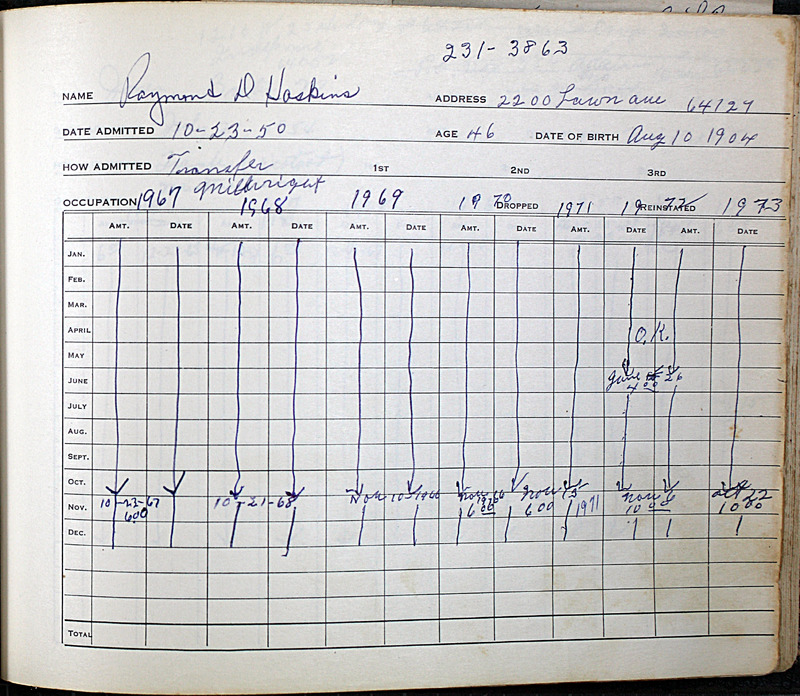 231-3863
NAME Raymond D Haskins ADDRESS 2200 Lawn ave 64127
DATE ADMITTED 10-23-50 AGE 46 DATE OF BIRTH Aug 10 1904
HOW ADMITTED Transfer 1ST 2ND 3RD
OCCUPATION Millwright
1967 1968 1969 1970 DROPPED 1971 1972 REINSTATED 1973
AMT. DATE AMT. DATE AMT. DATE AMT. DATE AMT. DATE AMT. DATE
JAN.
FEB.
MAR.
APRIL O.K.
MAY
JUNE June 26
4 00
JULY
AUG.
SEPT.
OCT.
10-23-67 10-21-68 Nov 10 Nov Nov 13 Nov 6 22
NOV. 6 00 6 00 6 00 1971 10 00 10 00
DEC.
TOTAL